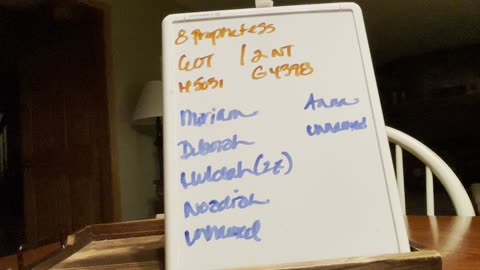 8 Prophetess
6 OT / 2 NT
H5031 G4398
Miriam
Deborah
Huldah (2x)
Noadiah
unnamed
Anna
unnamed